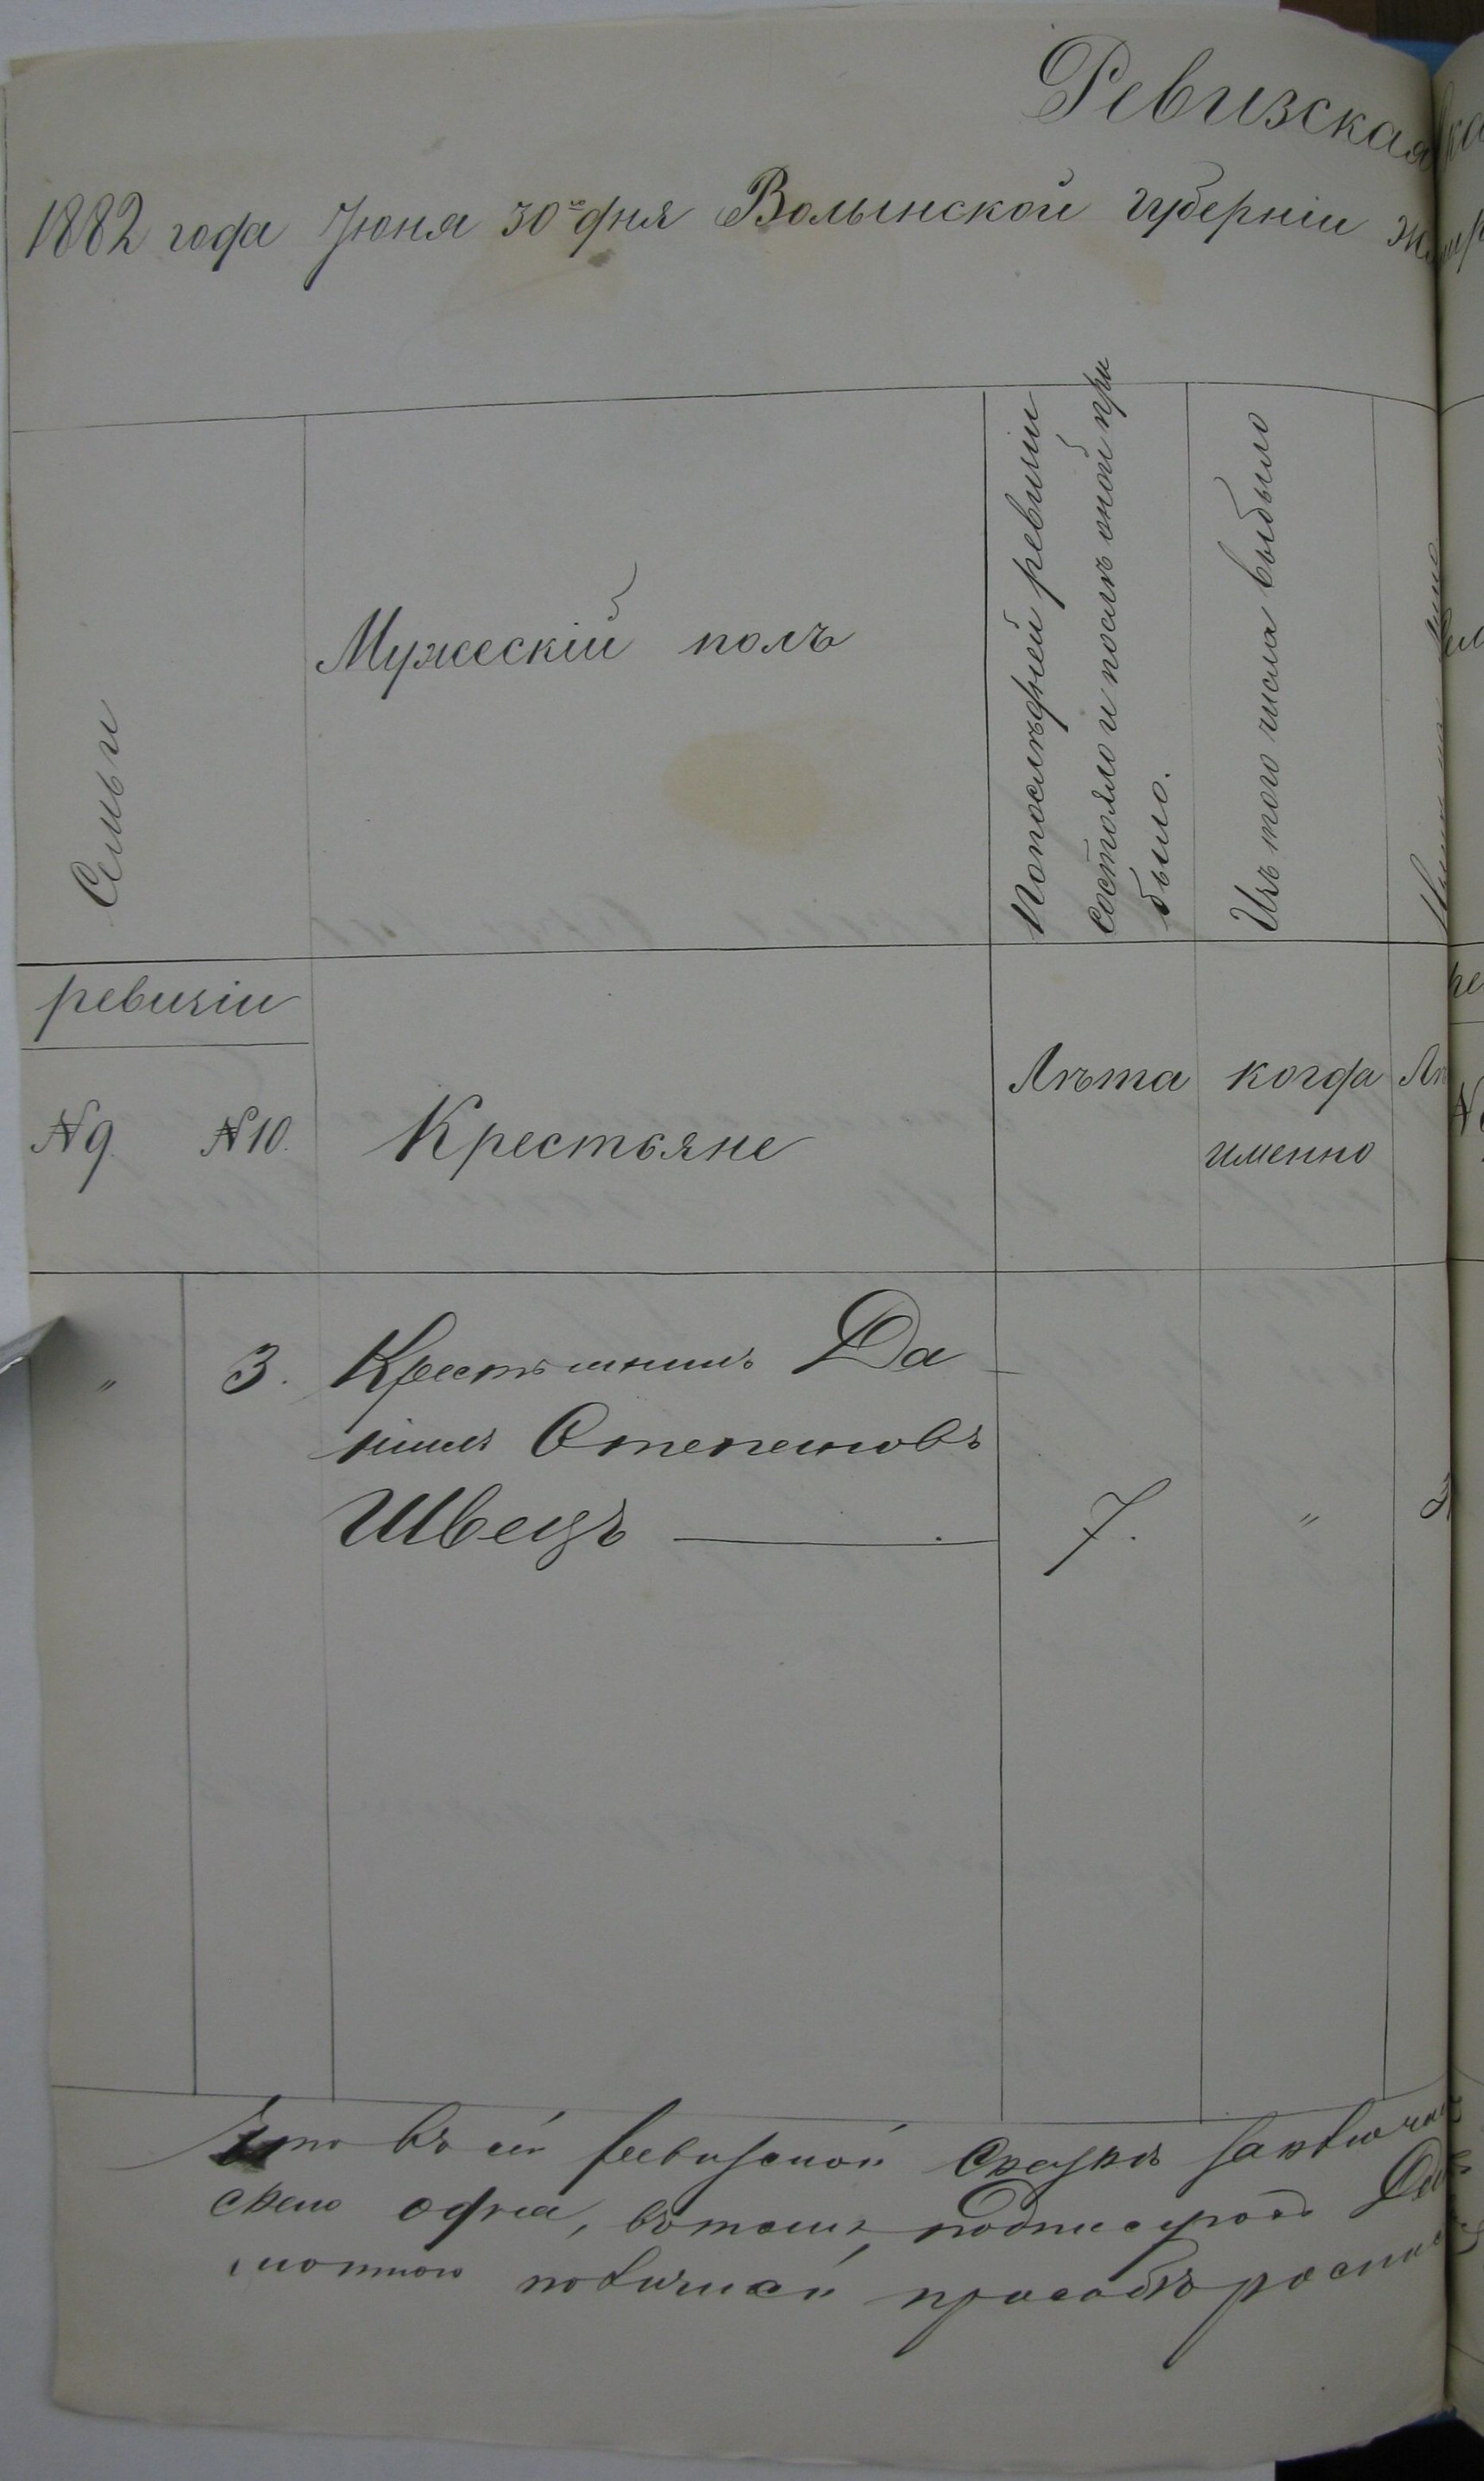 Ревизская
1882 года Іюня 30го дня Волынской губерніи Жи
Семьи
Мужескій полъ
Попослѣдней ревизіи
состояло и послѣ оной при
было.
Изъ того числа выбыло
ревизіи
№ 9. № 10.
Крестьяне
Лѣта
когда
именно
Лѣ
" 3. Крестьянинъ Да
ніилъ Степановъ
Швецъ — 7. "
Что въ сей ревизской Сказкѣ заключа
одна, вътомъ подписуюсь